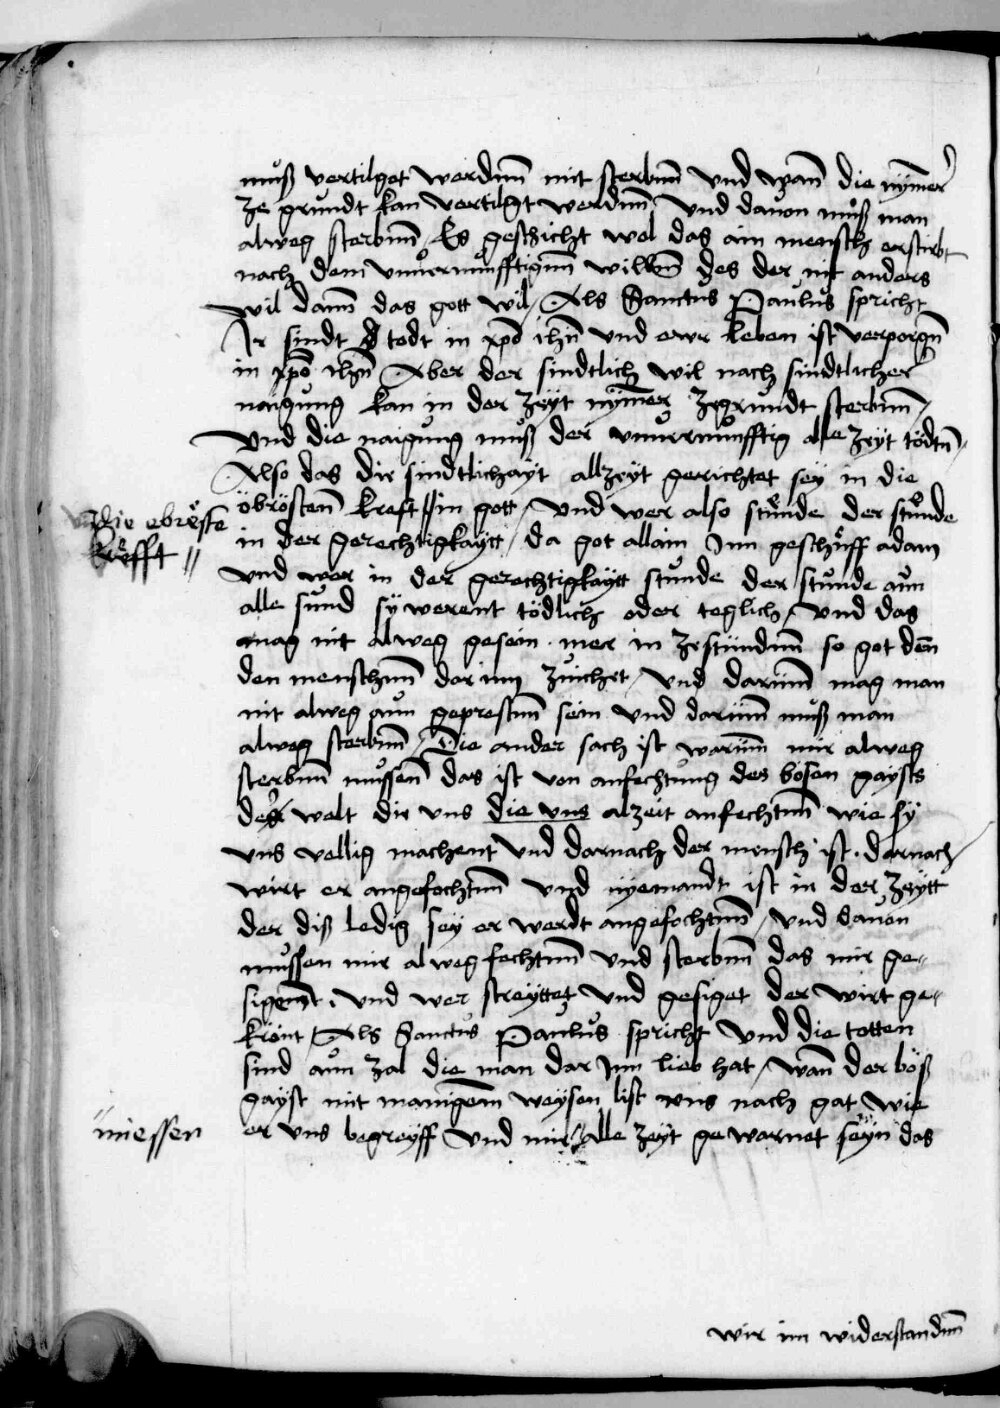 muͦß vertilget werdenn mit sterbenn vnd wann die nymer
ze grundt kan vertilgt werdenn vnd dauon muͦß man
alweg sterbenn / Es geschicht wol das ain mensch erstirbt
nach dem vnuͦernuͦnfftigenn willenn des der nit anders
wil dann das gott wil / Als Sanctus Paulus spricht
Ir sindt todt in xpo ihū vnd ewr leben ist verporgn
in xpo ihū Aber der sindtlich wil nach sindtlicher
naigung kan in der zeyt nymer zegrundt sterbenn /
Vnd die naigung muͦß der vnuernuͦnfftig alle zeyt tödtn
Also das die sindtlichayt allzeyt gerichtet sey in die
öbröstenn kreft // in gott / vnd wer also stuͦnde der stuͦnde
die ebrösste
kräfft //
in der gerechtigkaytt / da got allain Inn geschuͦff adam
vnd wer in der gerechtigkaytt stuͦnde der stuͦnde aun
alle sund sy werent tödlich oder teglich / vnd das
mag nit alweg gesein mer in zestündenn so got den
den menschenn dar inn zuͦichet / vnd darumm mag man
nit alweg aun geprestenn sein vnd darumm muͦß man
alweg sterbenn / Die ander sach ist warumm mir alweg
sterbenn muͦssenn das ist von anfechtung des bösen gaysts
der welt die vns die vns alzeit anfechtenn wie sy
vns vellig machent vnd darnach der mensch ist. darnach
wirt er angefochtenn vnd nyemandt ist in der zeytt
der diß ledig sey er werdt angefochtenn / vnd dauon
muͦssen mir alweg fechtenn vnd sterbenn das mir ge-
sigennt. vnd wer streyttet vnd gesiget der wirt ge-
krönt / Als Sanctus Paulus spricht vnd die totten
sind aun zal die man dar Inn lieb hat / wann der böß
gayst mit manigem weysen list vns nach gat wie
er vns begreyff vnd mir // alle zeyt gewarnet seyn das
// miessen
wir im widerstandenn